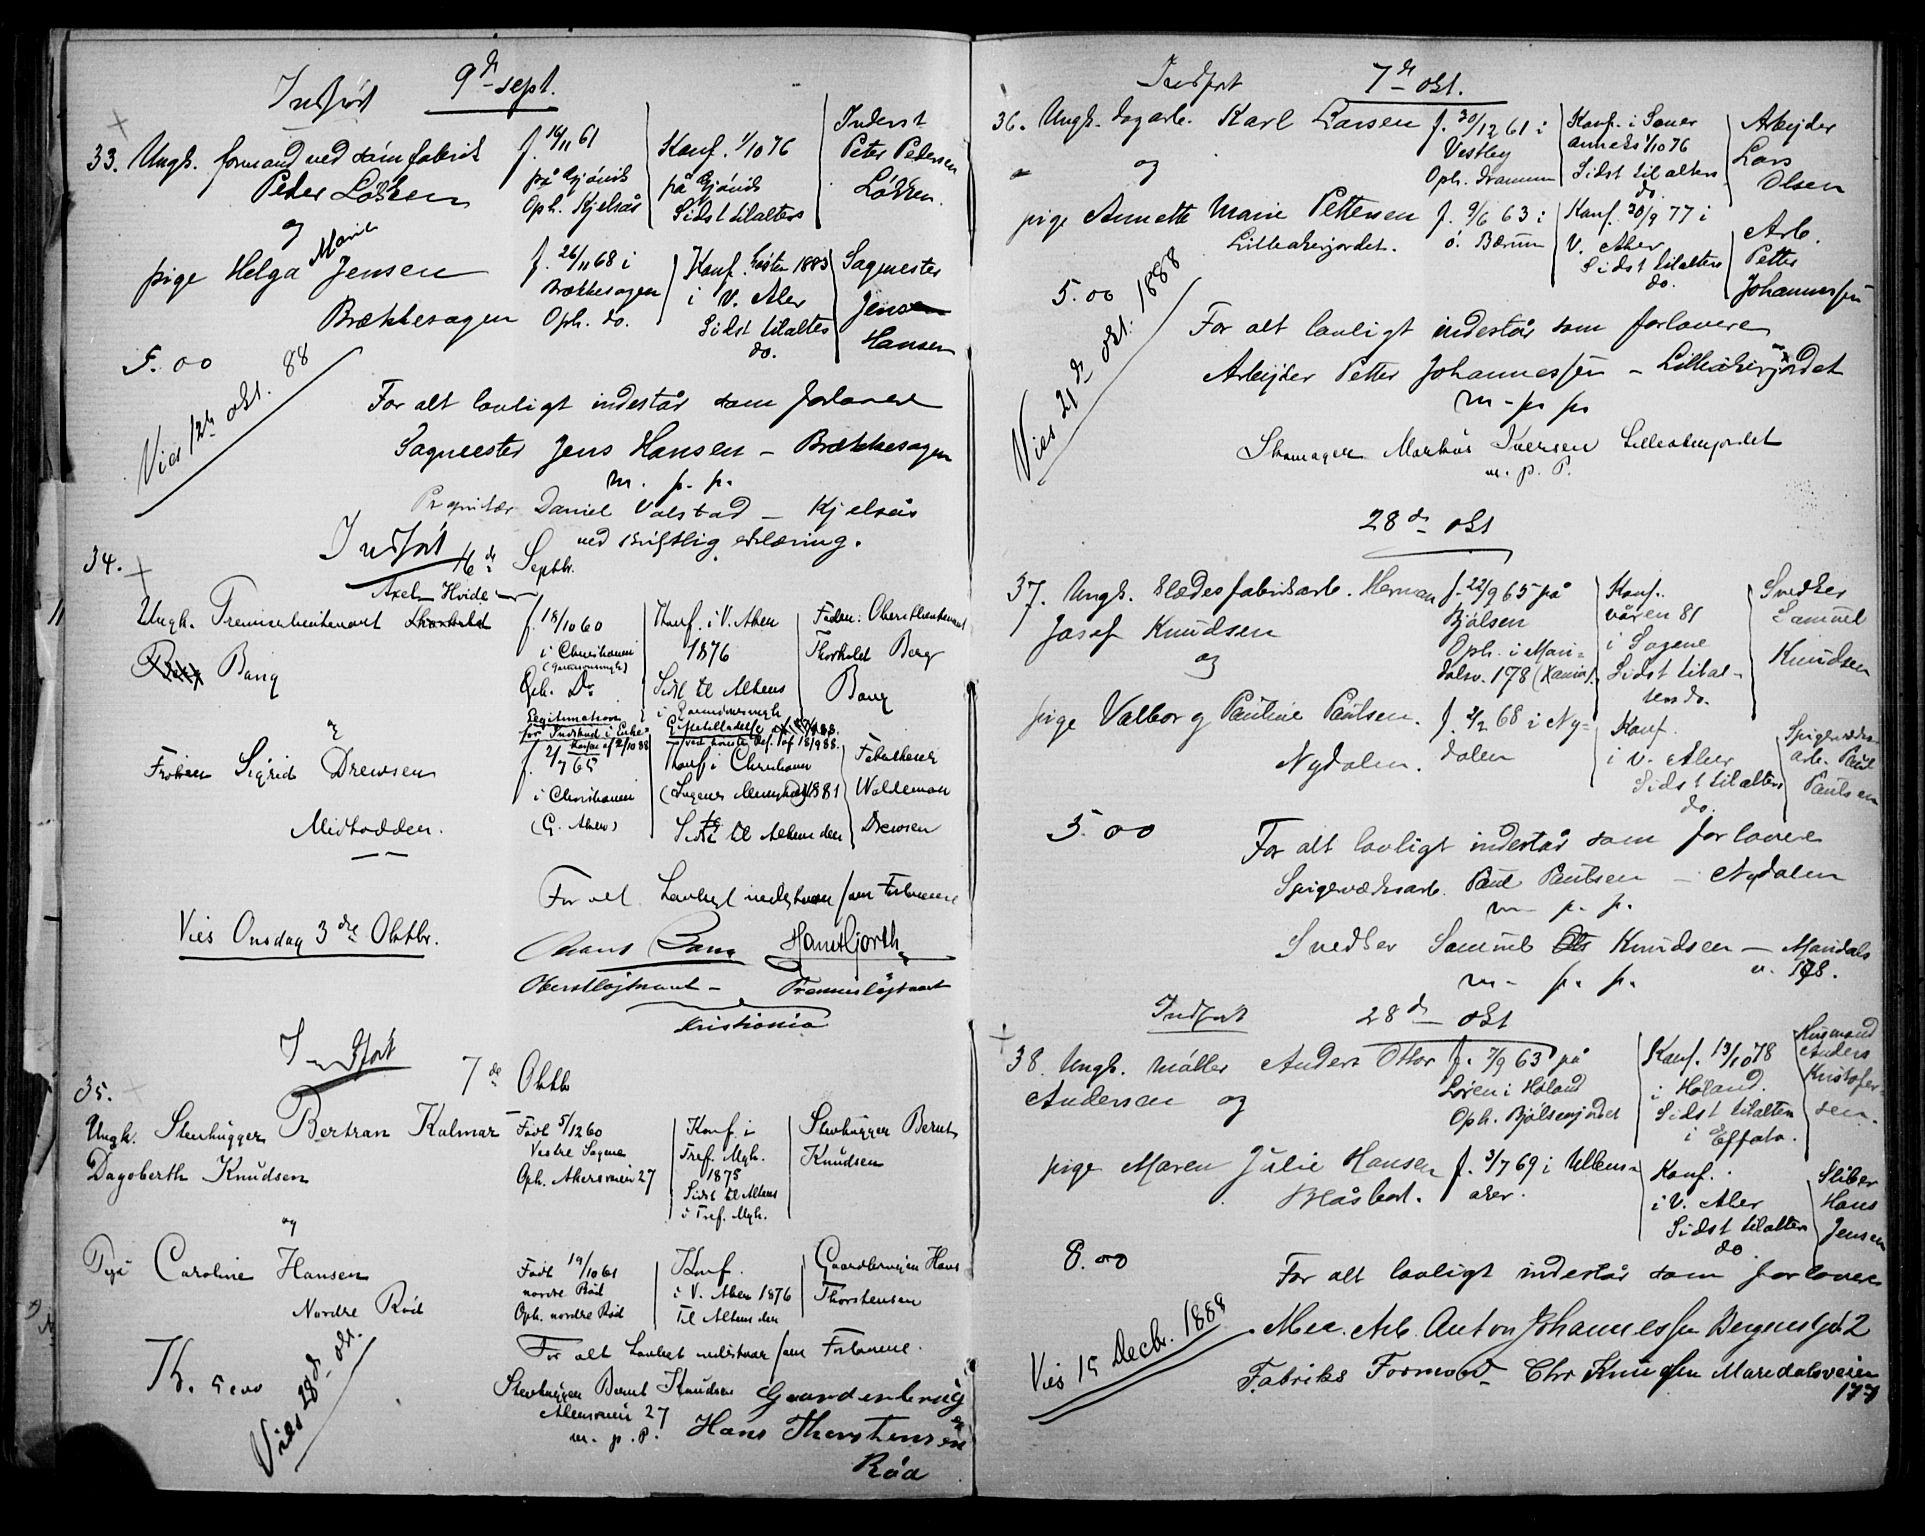 Indført 9de sept.
33. Ungk. formand ved sömfabrik
Peter Løkken
f. 16/11 61
på Gjøvik
Oph. Kjelsås
Konf. 1/10 76
på Gjøvik
Sidst til alters
Inderst
Peter Pedersen
Løkken.
og
pige Helga Marie Jensen
Brækkesagen
f. 26/11 68 i
Brækkesagen
Oph. do.
Konf. høsten 1883
i V. Aker
Sidst til alters
do.
Sagmester
Jens
Hansen
5.00
Vies 12te okt. 88
For alt lovligt indestår som forlovere
Sagmester Jens Hansen – Brækkesagen
m. p. p.
Proprietær Daniel Valstad – Kjelsås
ved skriftlig erklæring.
34.
Indført
16de Septbr.
Axel Hvide
Ungk. Premierlieutenant
Bang
f. 18/10 60
i Christiania
(Garnisonsmgh)
Oph. Do
Konf. i V. Aker
1876
Sidst til Alters
i Garnisonsmgh
Fader: Oberstlieutenant
Thorkild Berg
Bang
Legitimation
for Indskud i Enke-
kassen af 2/10 88
&
Frøken Sigrid Drewsen
Midtodden.
f. 2/7 65
i Christiania
(G. Aker)
Konf i Christiania
1881
Sidst til Alters den
Fabrikeier
Waldemar
Drewsen
For alt Lovligt indestaar som Forlovere
Vies Onsdag 3die Oktbr.
Bang Hans Hjorth
Oberstløjtnant – Premierløjtnant
Kristiania
Indført
7de Oktb
35.
Ungk. Stenhugger Bertran Kalmar
Dagoberth Knudsen
Født 5/12 60
Vestre Sagene
Oph. Akersveien 27
Konf. i
Tref. Mgh.
1875
Sidst til Alters
i Tref. Mgh.
Stenhugger Bernt
Knudsen
og
Pige Caroline Hansen
Nordre Röd
Født 19/10 61
nordre Röd
Oph. nordre Röd
Konf.
i V. Aker 1876
Til Alters den
Gaardbruger Hans
Thorstensen
Kr. 5.00
Vies 28de okt.
For alt Lovligt indestaar som Forlovere.
Stenhugger Bernt Knudsen
Akersveien 27
m. p. P.
Gaardenbruger
Hans Thorstensen
Röd
Indført 7de okt.
36. Ungk. dagarb. Karl Larsen
f. 30/12 61 i
Vestby
Oph. Drammen
Konf. i Soner
anneks 1/10 76
Sidst til alters
do.
Arbejder
Lars
Olsen
og
pige Annette Marie Pettersen
Lilleakerjordet.
f. 9/6 63 i
ö. Bærum
Konf. 30/9 77 i
V. Aker
Sidst til alters
do.
Arb.
Petter
Johannessen
5.00
Vies 21de okt. 1888
For alt lovligt indestår som forlovere
Arbejder Petter Johannessen – Lilleakerjordet
m – p. p.
Skomager Markus Iversen Lilleakerjordet
m. p. P.
28de okt
37. Ungk. Slædefabrikarb. Herman
Josef Knudsen
f. 22/9 65 på
Bjølsen
Oph. i Mari-
dalsv. 178
Konf.
våren 81
i Sagene
Sidst til al-
ters do.
Svedker
Samuel
Knudsen
og
pige Valborg Pauline Paulsen.
Nydalen.
f. 2/2 68 i Ny-
dalen
Konf.
i V. Aker
Sidst til alters
do.
Spigerværks-
arb. Paul
Paulsen
5.00
For alt lovligt indestår som forlovere
Spigerværksarb. Paul Paulsen – Nydalen
m – p. p.
Svedker Samuel Knudsen – Maridals
v. 178.
m – p. p.
Indført 28de okt
38. Ungk. Møller Anders Ottar
Andersen og
f. 7/9 63 på
Løren i Høland
Oph. Bjølsenjordet
Konf. 13/10 78
i Høland.
Sidst til alters
i Effata.
Husmand
Anders
Kristofer-
sen.
pige Maren Julie Hansen
f. 3/7 69 i Ullens-
aker.
Konf.
i V. Aker
Sidst til alters
do
Sliber
Hans
Jensen
8.00
Vies 15 Decbr. 1888
For alt lovligt indestår som forlovere
Mec. Arb. Anton Johannessen Bergensgd 2
Fabriks Formand Chr Knudsen Maridalsveien
177